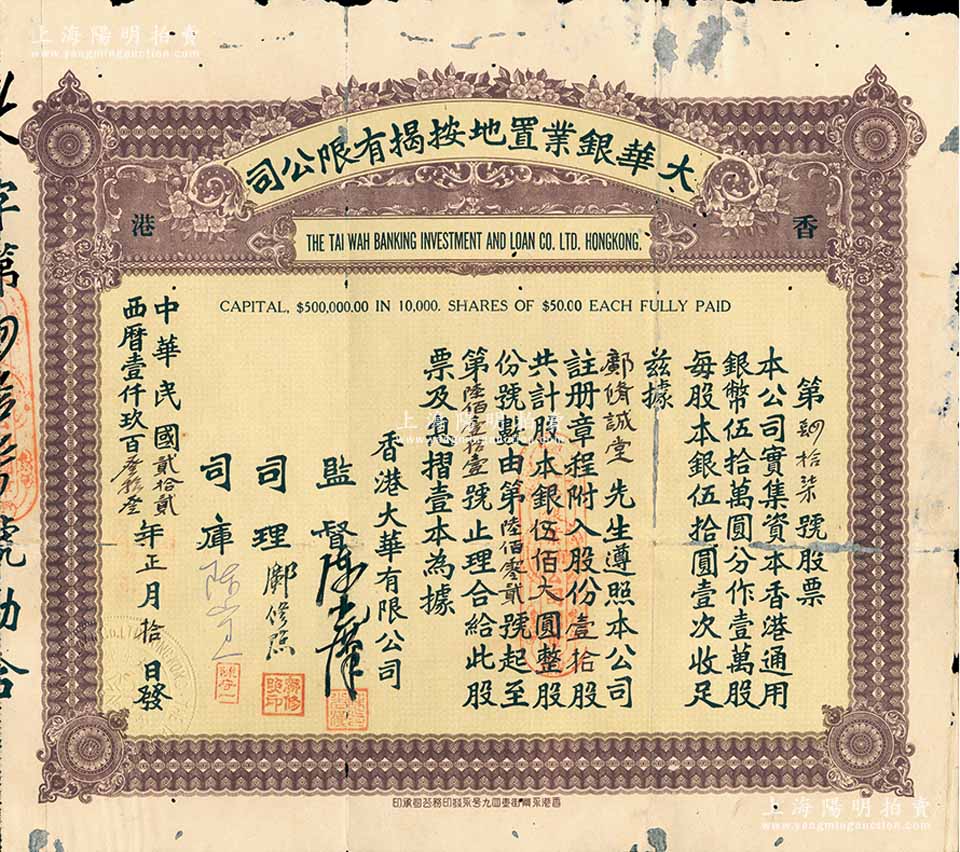 上海陽明拍賣
www.yangmingauction.com
大華銀業置地按揭有限公司
香港
THE TAI WAH BANKING INVESTMENT AND LOAN CO. LTD. HONGKONG.
CAPITAL, $500,000.00 IN 10,000. SHARES OF $50.00 EACH FULLY PAID
第肆拾柒號股票
本公司實集資本香港通用
銀幣伍拾萬圓分作壹萬股
每股本銀伍拾圓壹次收足
茲據
鄺脩誠堂先生遵照本公司
註册章程附入股份壹拾股
共計股本銀伍佰大圓整股
份號數由第陸佰零貳號起至
第陸佰壹拾壹號止理合給此股
票及息摺壹本為據
香港大華有限公司
監督
司理 鄺修照
司庫
中華民國貳拾貳
西曆壹仟玖百叁拾叁
年正月拾日發
上海陽明拍賣
www.yangmingauction.com
上海陽明拍賣
www.yangmingauction.com